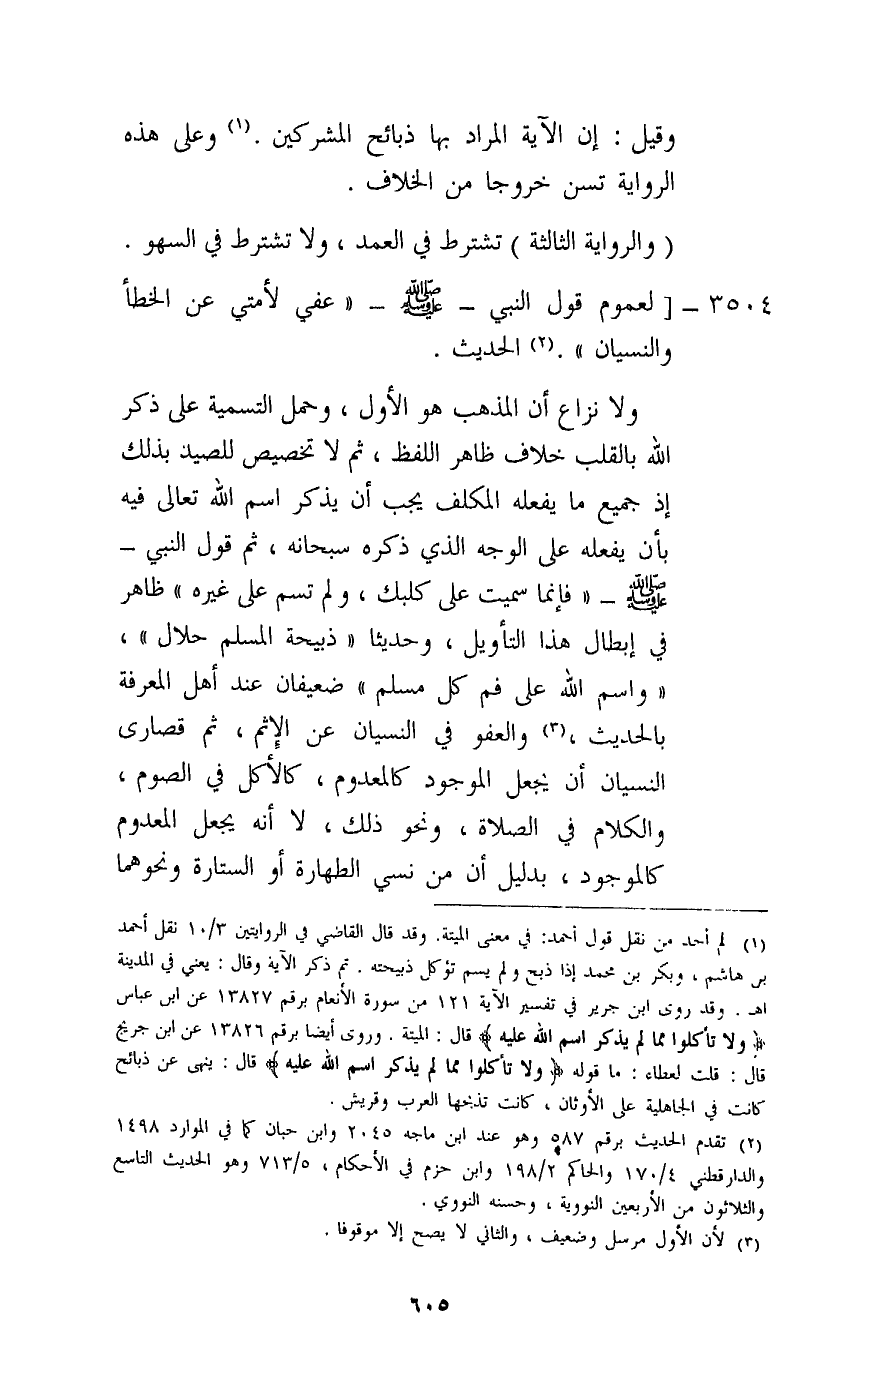 وقيل : إن الآية المراد بها ذبائح المشركين .(١) وعلى هذه
الرواية تسن خروجا من الخلاف .
( والرواية الثالثة ) تشترط في العمد ، ولا تشترط في السهو .
٣٥٠٤ – [ لعموم قول النبي – ﷺ – « عفي لأمتي عن الخطأ
والنسيان » .(٢) الحديث .
ولا نزاع أن المذهب هو الأول ، وحمل التسمية على ذكر
الله بالقلب خلاف ظاهر اللفظ ، ثم لا تخصيص للصيد بذلك
إذ جميع ما يفعله المكلف يجب أن يذكر اسم الله تعالى فيه
بأن يفعله على الوجه الذي ذكره سبحانه ، ثم قول النبي –
ﷺ – « فإنما سميت على كلبك ، ولم تسم على غيره » ظاهر
في إبطال هذا التأويل ، وحديثا « ذبيحة المسلم حلال » ،
« واسم الله على فم كل مسلم » ضعيفان عند أهل المعرفة
بالحديث ،(٣) والعفو في النسيان عن الإثم ، ثم قصارى
النسيان أن يجعل الموجود كالمعدوم ، كالأكل في الصوم ،
والكلام في الصلاة ، ونحو ذلك ، لا أنه يجعل المعدوم
كالموجود ، بدليل أن من نسي الطهارة أو الستارة ونحوهما
(١) لم أجد من نقل قول أحمد: في معنى الميتة. وقد قال القاضي في الروايتين ١٠/٣ نقل أحمد
بن هاشم ، وبكر بن محمد إذا ذبح ولم يسم تؤكل ذبيحته . ثم ذكر الآية وقال : يعني في المدينة
اهـ . وقد روى ابن جرير في تفسير الآية ١٢١ من سورة الأنعام برقم ١٣٨٢٧ عن ابن عباس
﴿ ولا تأكلوا مما لم يذكر اسم الله عليه ﴾ قال : الميتة . وروى أيضا برقم ١٣٨٢٦ عن ابن جريج
قال : قلت لعطاء : ما قوله ﴿ ولا تأكلوا مما لم يذكر اسم الله عليه ﴾ قال : ينهى عن ذبائح
كانت في الجاهلية على الأوثان ، كانت تذبحها العرب وقريش .
(٢) تقدم الحديث برقم ٥٨٧ وهو عند ابن ماجه ٢٠٤٥ وابن حبان كما في الموارد ١٤٩٨
والدارقطني ١٧٠/٤ والحاكم ١٩٨/٢ وابن حزم في الأحكام ، ٧١٣/٥ وهو الحديث التاسع
والثلاثون من الأربعين النووية ، وحسنه النووي .
(٣) لأن الأول مرسل وضعيف ، والثاني لا يصح إلا موقوفا .
٦٠٥